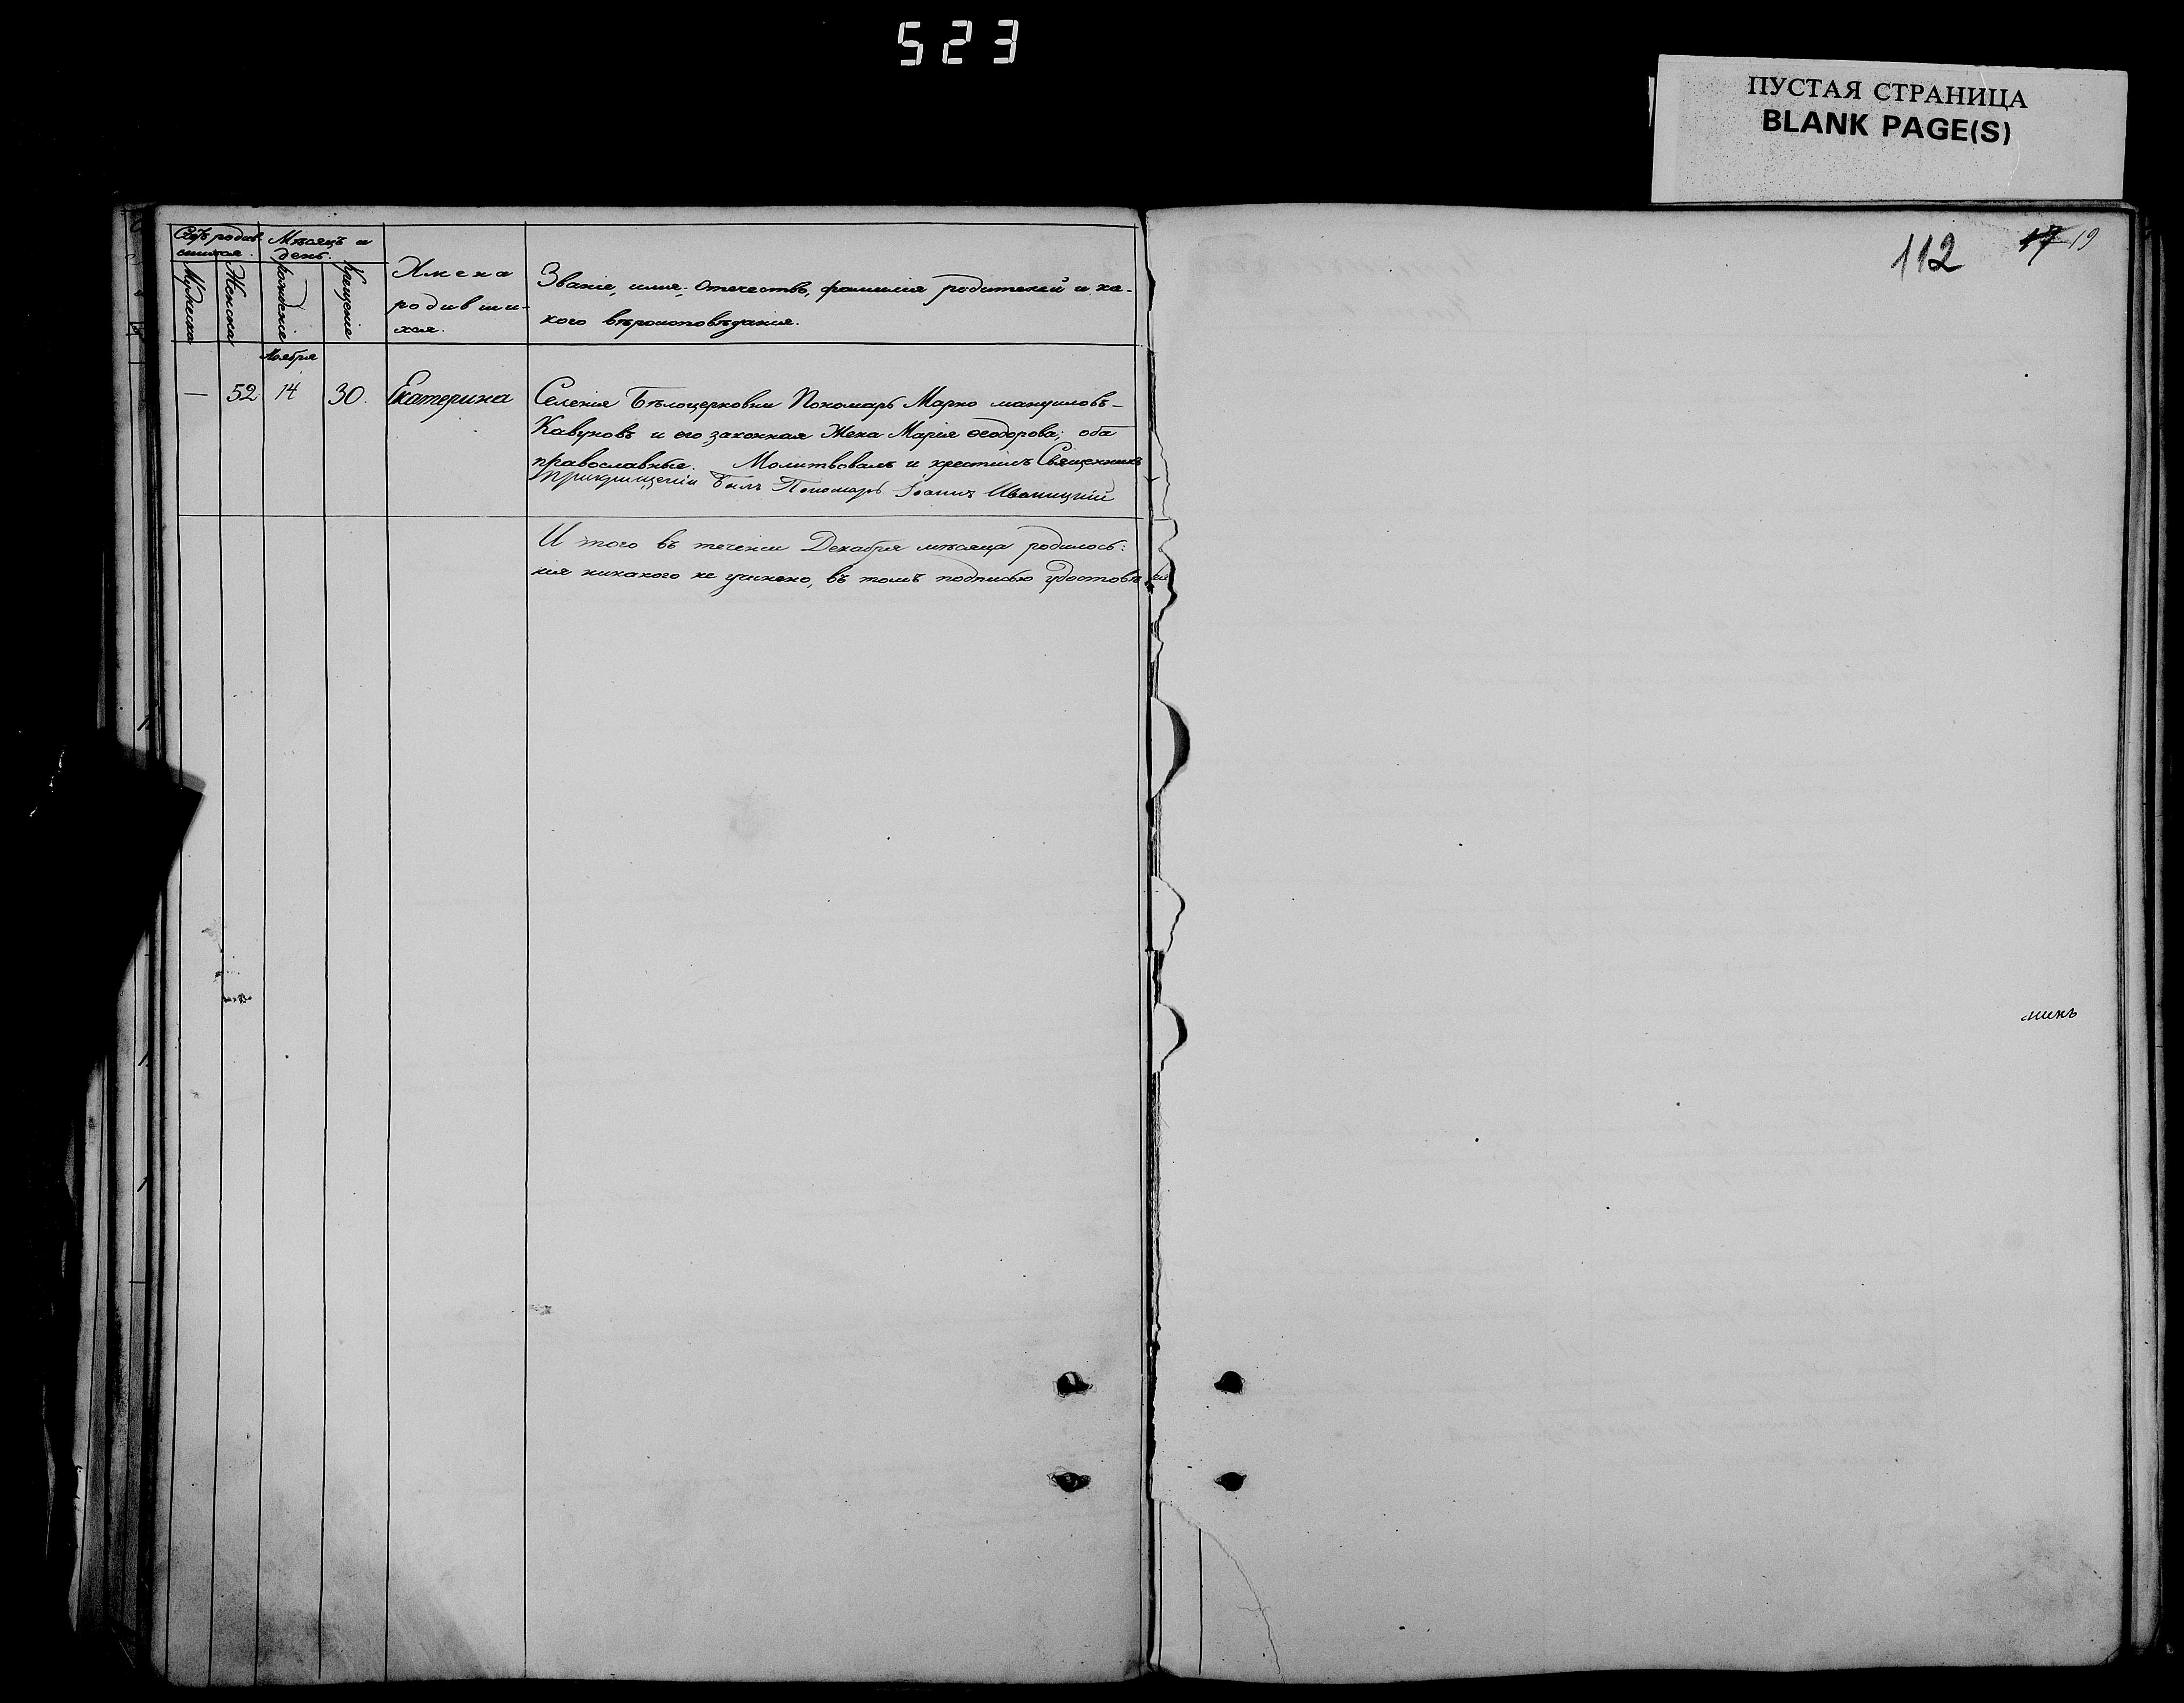 523
ПУСТАЯ СТРАНИЦА
BLANK PAGE(S)
112 17 19
Счетъ родив-
шихся.
Мѣсяцъ и
день.
Мужеска
Женска
рожденіе
Крещеніе
Имена
родивши-
хся.
Званіе, имя, отечество, фамилія родителей и ка-
кого вѣроисповѣданія.
Ноября
— 52 14 30. Екатерина
Селенія Бѣлоцерковки Пономарь Марко мануиловъ-
Кавуновъ и его законная Жена Марія ѳеодорова; оба
православные. Молитвовалъ и крестилъ Священникъ
Прикрищеніи былъ Пономарь Іоаннъ Иваницкій
И того въ теченіи Декабря мѣсяца родилось:
нія никакого не учинено, въ томъ подписью удостовѣ
никъ